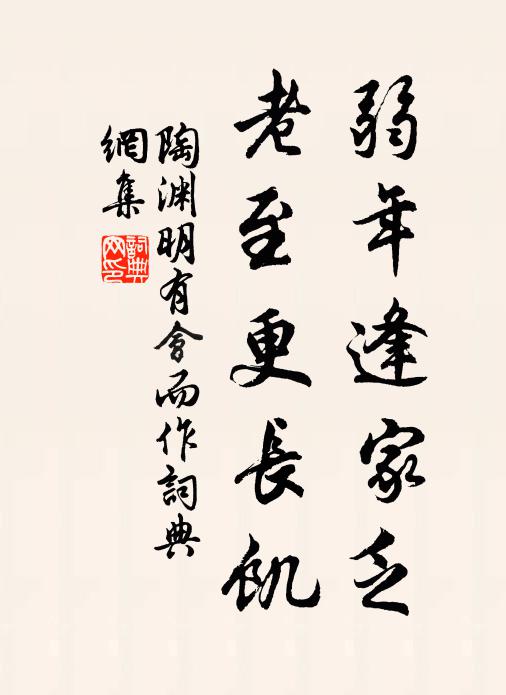 弱年逢家乏
老至更長飢
陶渊明有會而作詞典
網集
詞典
网印